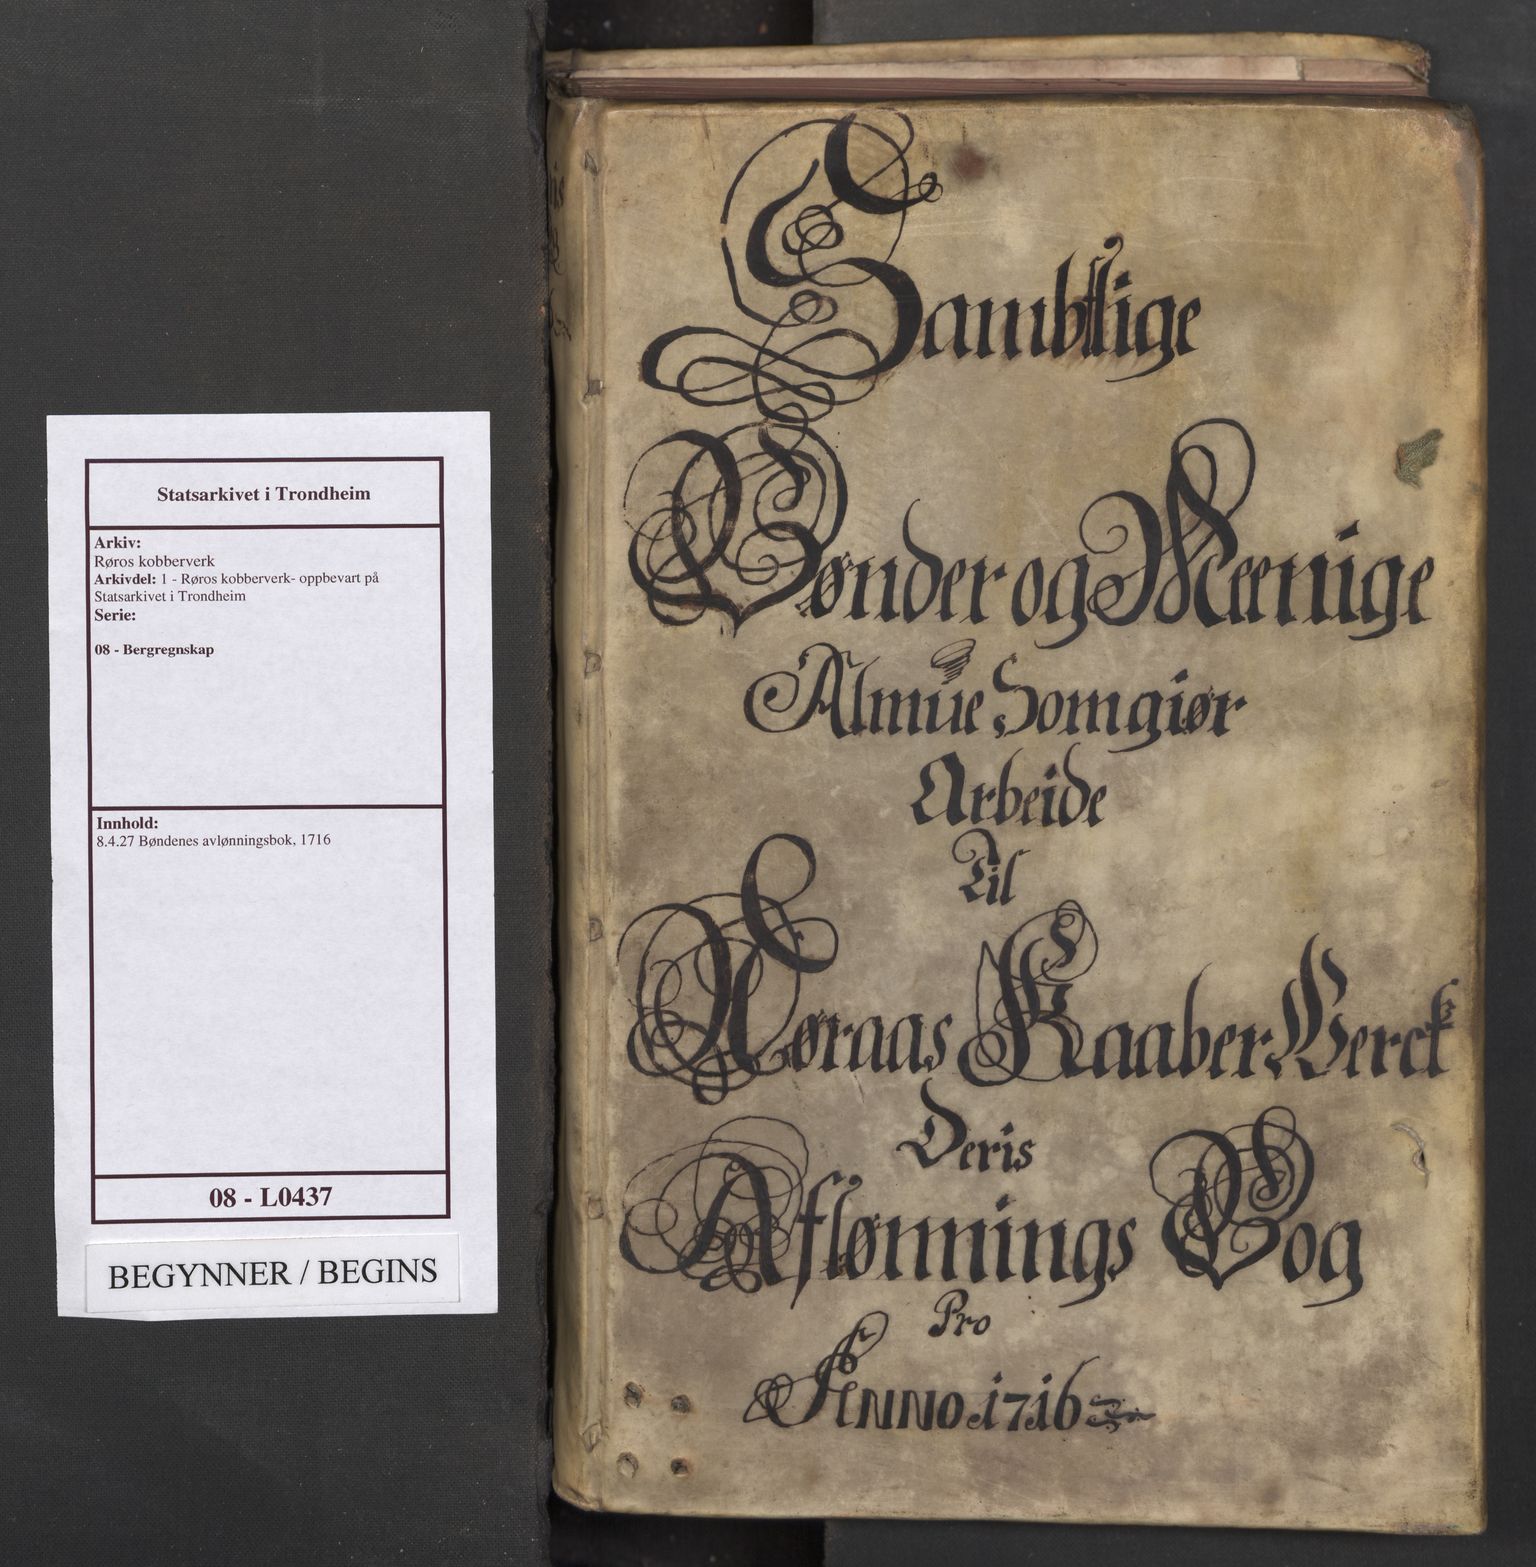 Statsarkivet i Trondheim
Arkiv:
Røros kobberverk
Arkivdel: 1 - Røros kobberverk- oppbevart på
Statsarkivet i Trondheim
Serie:
08 - Bergregnskap
Innhold:
8.4.27 Bøndenes avlønningsbok, 1716
08 - L0437
BEGYNNER / BEGINS
Sambtlige
Bønder og Meenige
Almue Som giør
Arbeide
Til
Røraas Kaaber Verck
Deris
Aflønnings Bog
Pro
Anno 1716